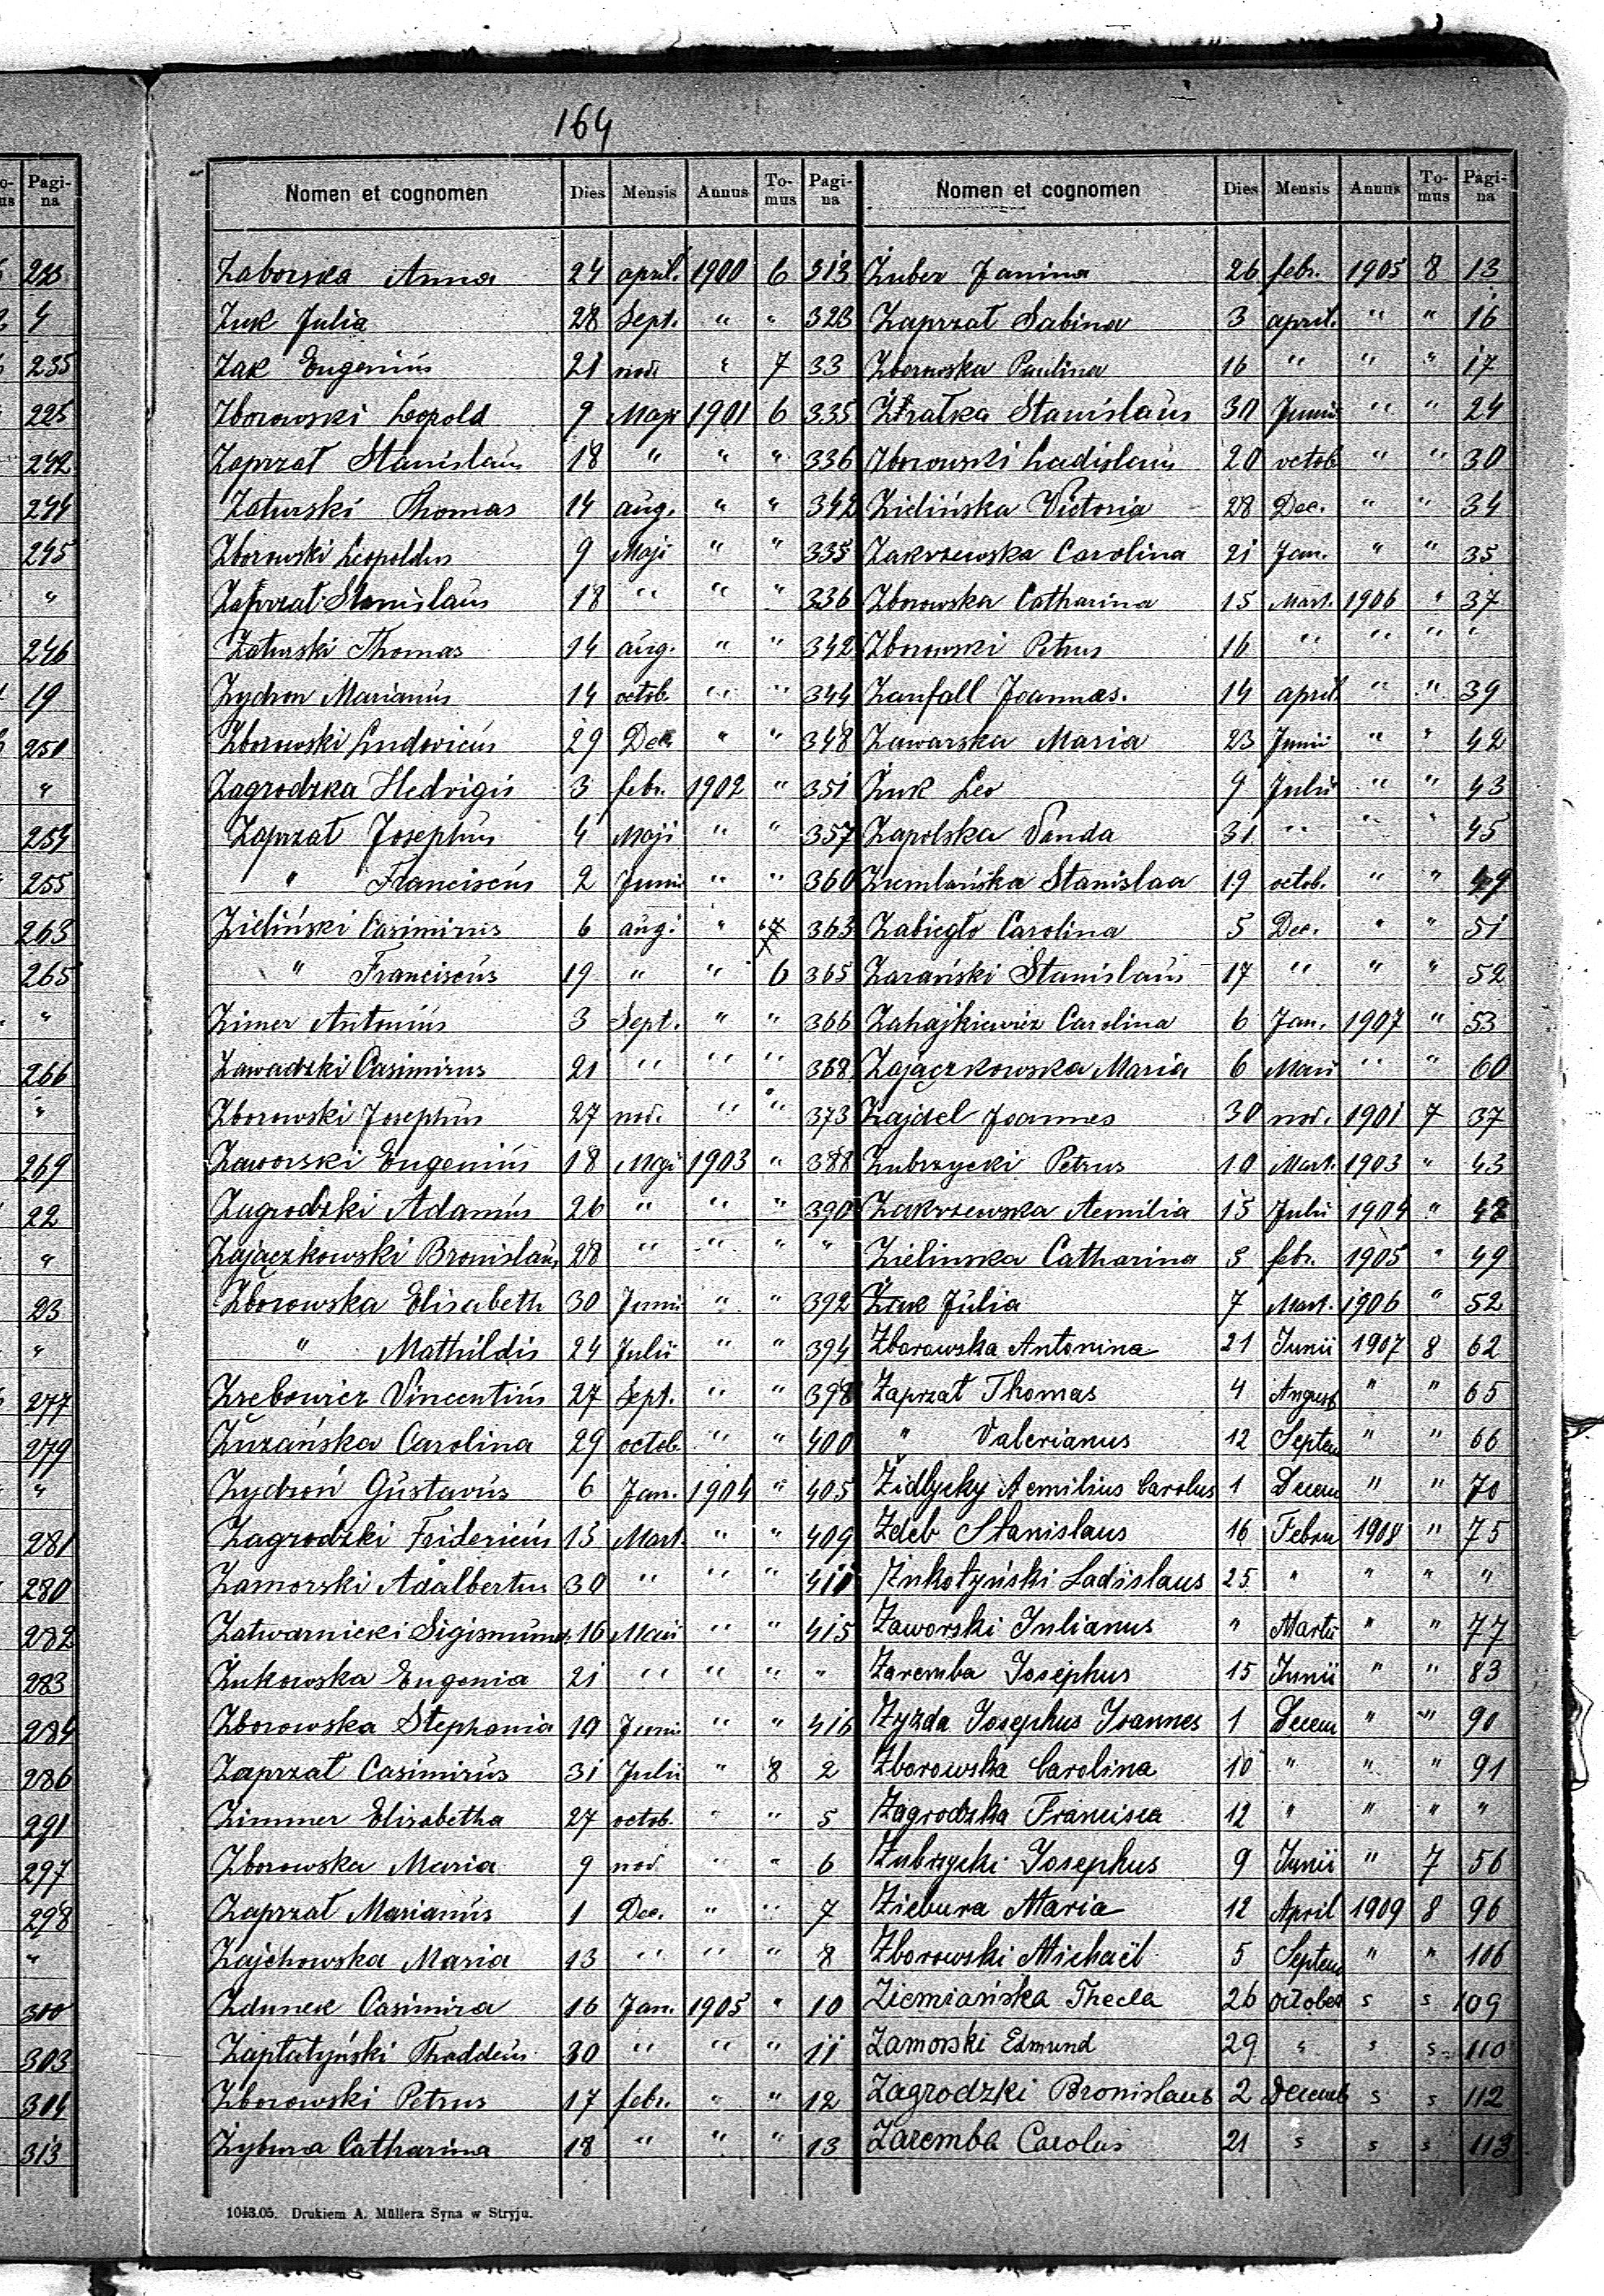 164
Pagi-na
223
4
235
225
242
244
245
"
246
19
251
"
254
255
263
265
"
266
"
269
22
"
23
"
277
279
"
281
280
282
283
284
286
291
297
298
"
300
303
304
313
Nomen et cognomen Dies Mensis Annus To-mus Pagi-na
Zaborska Anna 24 april. 1900 6 313
Żuk Julia 28 Sept. " " 323
Żak Eugenius 21 nov. " 7 33
Zborowski Leopold 9 Maji 1901 6 335
Zaprzał Stanislaus 18 " " " 336
Zaturski Thomas 14 aug. " " 342
Zborowski Leopoldus 9 Maji " " 335
Zaprzat Stanislaus 18 " " " 336
Zaturski Thomas 14 aug. " " 342
Zydron Marianus 14 octob. " " 344
Zborowski Ludovicus 29 Dec. " " 348
Zagrodzka Hedvigis 3 febr. 1902 " 351
Zaprzat Josephus 4 Maji " " 357
" Franciscus 2 Junii " " 360
Zieliński Casimirus 6 aug. " 363
" Franciscus 19 " " 6 365
Zimer Antonius 3 Sept. " " 366
Zawadzki Casimirus 21 " " " 368
Zborowski Josephus 27 nov. " " 373
Zaworski Eugenius 18 Maji 1903 " 388
Zagrodzki Adamus 26 " " " 390
Zajączkowski Bronislaus 28 " " " "
Zborowska Elisabeth 30 Junii " " 392
" Mathildis 24 Julii " " 394
Zrebowicz Vincentius 27 Sept. " " 398
Zuzańska Carolina 29 octob. " " 400
Zydroń Gustavus 6 Jan. 1904 " 405
Zagrodzki Fridericus 13 Mart. " " 409
Zamorski Adalbertus 30 " " " 411
Zatwarnicki Sigismund. 16 Maii " " 415
Żukowska Eugenia 21 " " " "
Zborowska Stephania 19 Junii " " 416
Zaprzat Casimirus 31 Julii " 8 2
Zimmer Elisabetha 27 octob. " " 5
Zborowska Maria 9 nov. " " 6
Zaprzat Marianus 1 Dec. " " 7
Zajchowska Maria 13 " " " 8
Zdunek Casimira 16 Jan. 1905 " 10
Zapłatyński Thaddeus 30 " " " 11
Zborowski Petrus 17 febr. " " 12
Zybura Catharina 18 " " " 13
Nomen et cognomen Dies Mensis Annus To-mus Pagi-na
Żuber Janina 26 febr. 1905 8 13
Zaprzat Sabina 3 april. " " 16
Zborowska Paulina 16 " " " 17
Stanislaus 30 Junii " " 24
Zborowski Ladislaus 20 octob. " " 30
Zielińska Victoria 28 Dec. " " 34
Zakrzewska Carolina 21 Jan. " " 35
Zborowska Catharina 15 Mart. 1906 " 37
Zborowski Petrus 16 " " " "
Zanfall Joannes. 14 april. " " 39
Zawarska Maria 23 Junii " " 42
Żuk Leo 9 Julii " " 43
Zapolska Vanda 31 " " " 45
Ziemlańska Stanislaa 19 octob. " " 49
Zabiegło Carolina 5 Dec. " " 51
Zarański Stanislaus 17 " " " 52
Zahajkiewicz Carolina 6 Jan. 1907 " 53
Zajączkowska Maria 6 Maii " " 60
Zajdel Joannes 30 nov. 1901 7 37
Zubrzycki Petrus 10 Mart. 1903 " 43
Zakrzewska Aemilia 15 Julii 1904 " 48
Zielinska Catharina 3 febr. 1905 " 49
Żak Julia 7 Mart. 1906 " 52
Zborowska Antonina 21 Junii 1907 8 62
Zaprzat Thomas 4 August " " 65
" Valerianus 12 Septem " " 66
Židlycky Aemilius Carolus 1 Decem " " 70
Zdeb Stanislaus 16 Febru 1908 " 75
Żukotyński Ladislaus 25 " " " "
Zaworski Julianus " Martii " " 77
Zaremba Josephus 15 Junii " " 83
Zyzda Josephus Joannes 1 Decem " " 90
Zborowska Carolina 10 " " " 91
Zagrodzka Francisca 12 " " " "
Zubrzycki Josephus 9 Junii " 7 56
Ziebura Maria 12 April 1909 8 96
Zborowski Michaël 5 Septem " " 106
Ziemiańska Thecla 26 October s s 109
Zamorski Edmund 29 " s s 110
Zagrodzki Bronislaus 2 Decemb s s 112
Zaremba Carolus 21 s s s 113
1043.05. Drukiem A. Müllera Syna w Stryju.